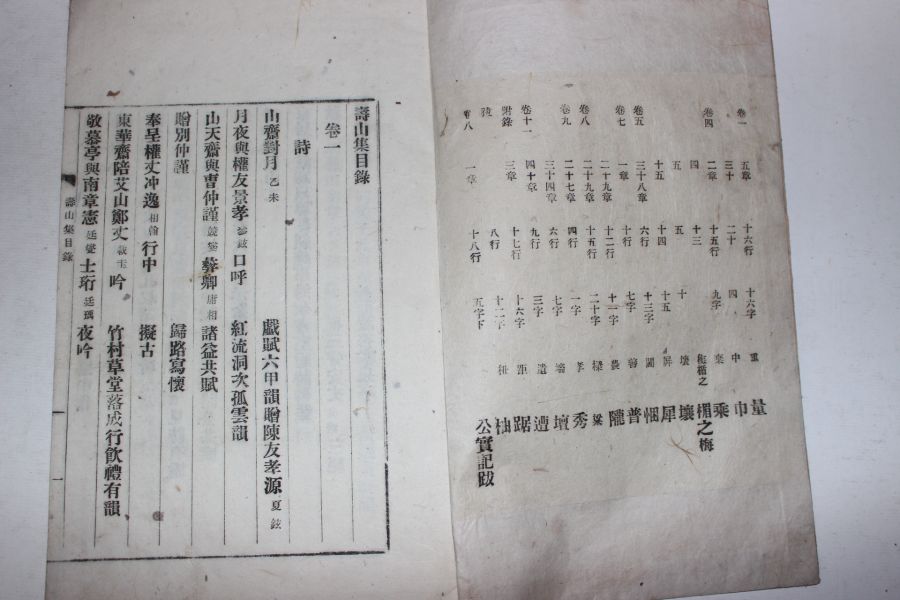 卷一 五章 十六行 十六字 重 量
三十 二十 四 中 巾
卷四 二章 十五行 九字 棄 乘
四 十三 梅楣之 楣之梅
五 五 十 壞 壤
十五 十四 十五 屛 犀
卷五 三十八章 六行 十三字 悃
卷七 一章 十行 七字 普
二十九章 十二行 十一字 隴
卷八 二十九章 十五行 二十字 樑 粱
二十七章 四行 一字 孝 秀
卷九 三十四章 六行 七字 壇
卷十一 四十章 九行 三字 遣 遭
附錄 三章 十七行 十六字 距 踞
八行 十二字 柚
卷八 一章 十八行 五字下 公實記跋
壽山集目錄
卷一
詩
山齋對月 乙未 戲賦六甲韻贈陳友孝源 夏鉉
月夜與權友景孝 參鉉 口呼 紅流洞次孤雲韻
山天齋與曺仲謹 兢燮 彝卿 庸相 諸益共賦
贈別仲謹 歸路寫懷
奉呈權丈冲逸 相翰 行中 擬古
東華齋陪艾山鄭丈 載圭 吟 竹村草堂落成行飮禮有韻
敬慕亭與南章憲 廷燮 士珩 廷瑀 夜吟
壽山集目錄 一